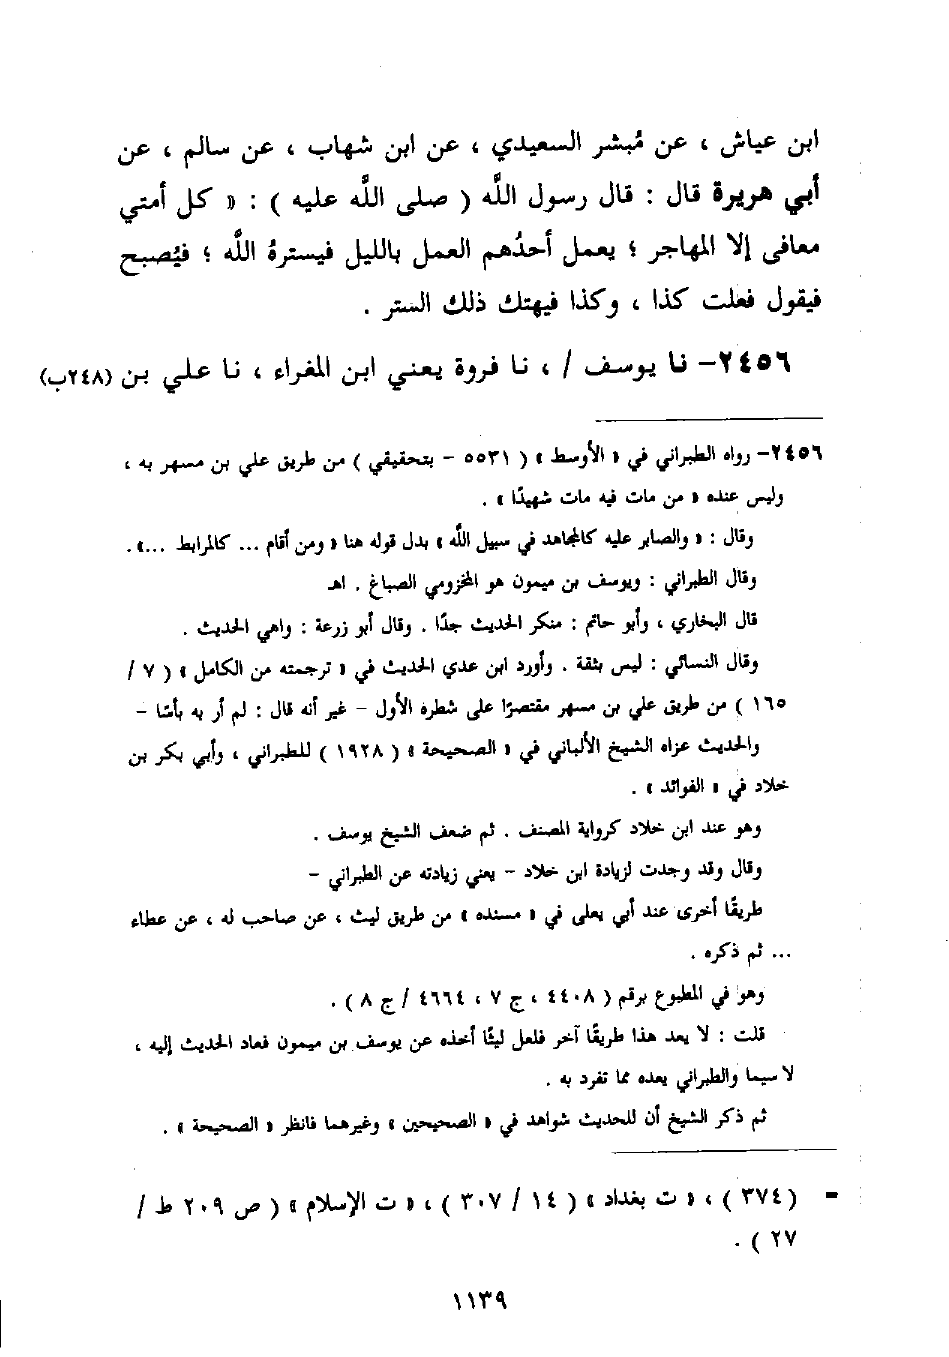 ابن عياش ، عن مُبشر السعيدي ، عن ابن شهاب ، عن سالم ، عن
أبي هريرة قال : قال رسول اللَّه ( صلى اللَّه عليه ) : « كل أمتي
معافى إلا المهاجر ؛ يعمل أحدُهم العمل بالليل فيسترهُ اللَّه ؛ فيُصبح
فيقول فعلت كذا ، وكذا فيهتك ذلك الستر .
٢٤٥٦- نا يوسف / ، نا فروة يعني ابن المغراء ، نا علي بن (٢٤٨ب)
٢٤٥٦- رواه الطبراني في « الأوسط » ( ٥٥٣١ - بتحقيقي ) من طريق علي بن مسهر به ،
وليس عنده « من مات فيه مات شهيدًا » .
وقال : « والصابر عليه كالمجاهد في سبيل اللَّه » بدل قوله هنا « ومن أقام ... كالمرابط ...» .
وقال الطبراني : ويوسف بن ميمون هو المخزومي الصباغ . اهـ
قال البخاري ، وأبو حاتم : منكر الحديث جدًا . وقال أبو زرعة : واهي الحديث .
وقال النسائي : ليس بثقة . وأورد ابن عدي الحديث في « ترجمته من الكامل » ( ٧ /
١٦٥ ) من طريق علي بن مسهر مقتصرًا على شطره الأول - غير أنه قال : لم أر به بأسًا -
والحديث عزاه الشيخ الألباني في « الصحيحة » ( ١٩٢٨ ) للطبراني ، وأبي بكر بن
خلاد في « الفوائد » .
وهو عند ابن خلاد كرواية المصنف . ثم ضعف الشيخ يوسف .
وقال وقد وجدت لزيادة ابن خلاد - يعني زيادته عن الطبراني -
طريقًا أخرى عند أبي يعلى في « مسنده » من طريق ليث ، عن صاحب له ، عن عطاء
... ثم ذكره .
وهو في المطبوع برقم ( ٤٤٠٨ ، ج ٧ ، ٤٦٦٤ / ج ٨ ) .
قلت : لا يعد هذا طريقًا آخر فلعل ليثًا أخذه عن يوسف بن ميمون فعاد الحديث إليه ،
لا سيما والطبراني يعده مما تفرد به .
ثم ذكر الشيخ أن للحديث شواهد في « الصحيحين » وغيرهما فانظر « الصحيحة » .
= ( ٣٧٤ ) ، « ت بغداد » ( ١٤ / ٣٠٧ ) ، « ت الإسلام » ( ص ٢٠٩ ط /
٢٧ ) .
١١٣٩